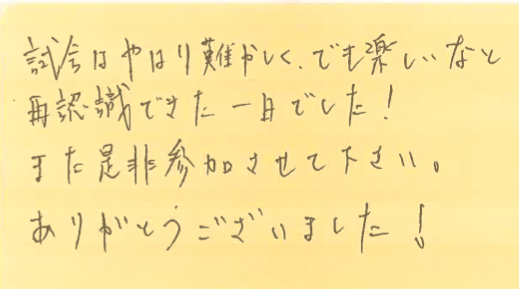 試合はやはり難かしく、でも楽しいなと
再認識できた一日でした！
また是非参加させて下さい。
ありがとうございました！